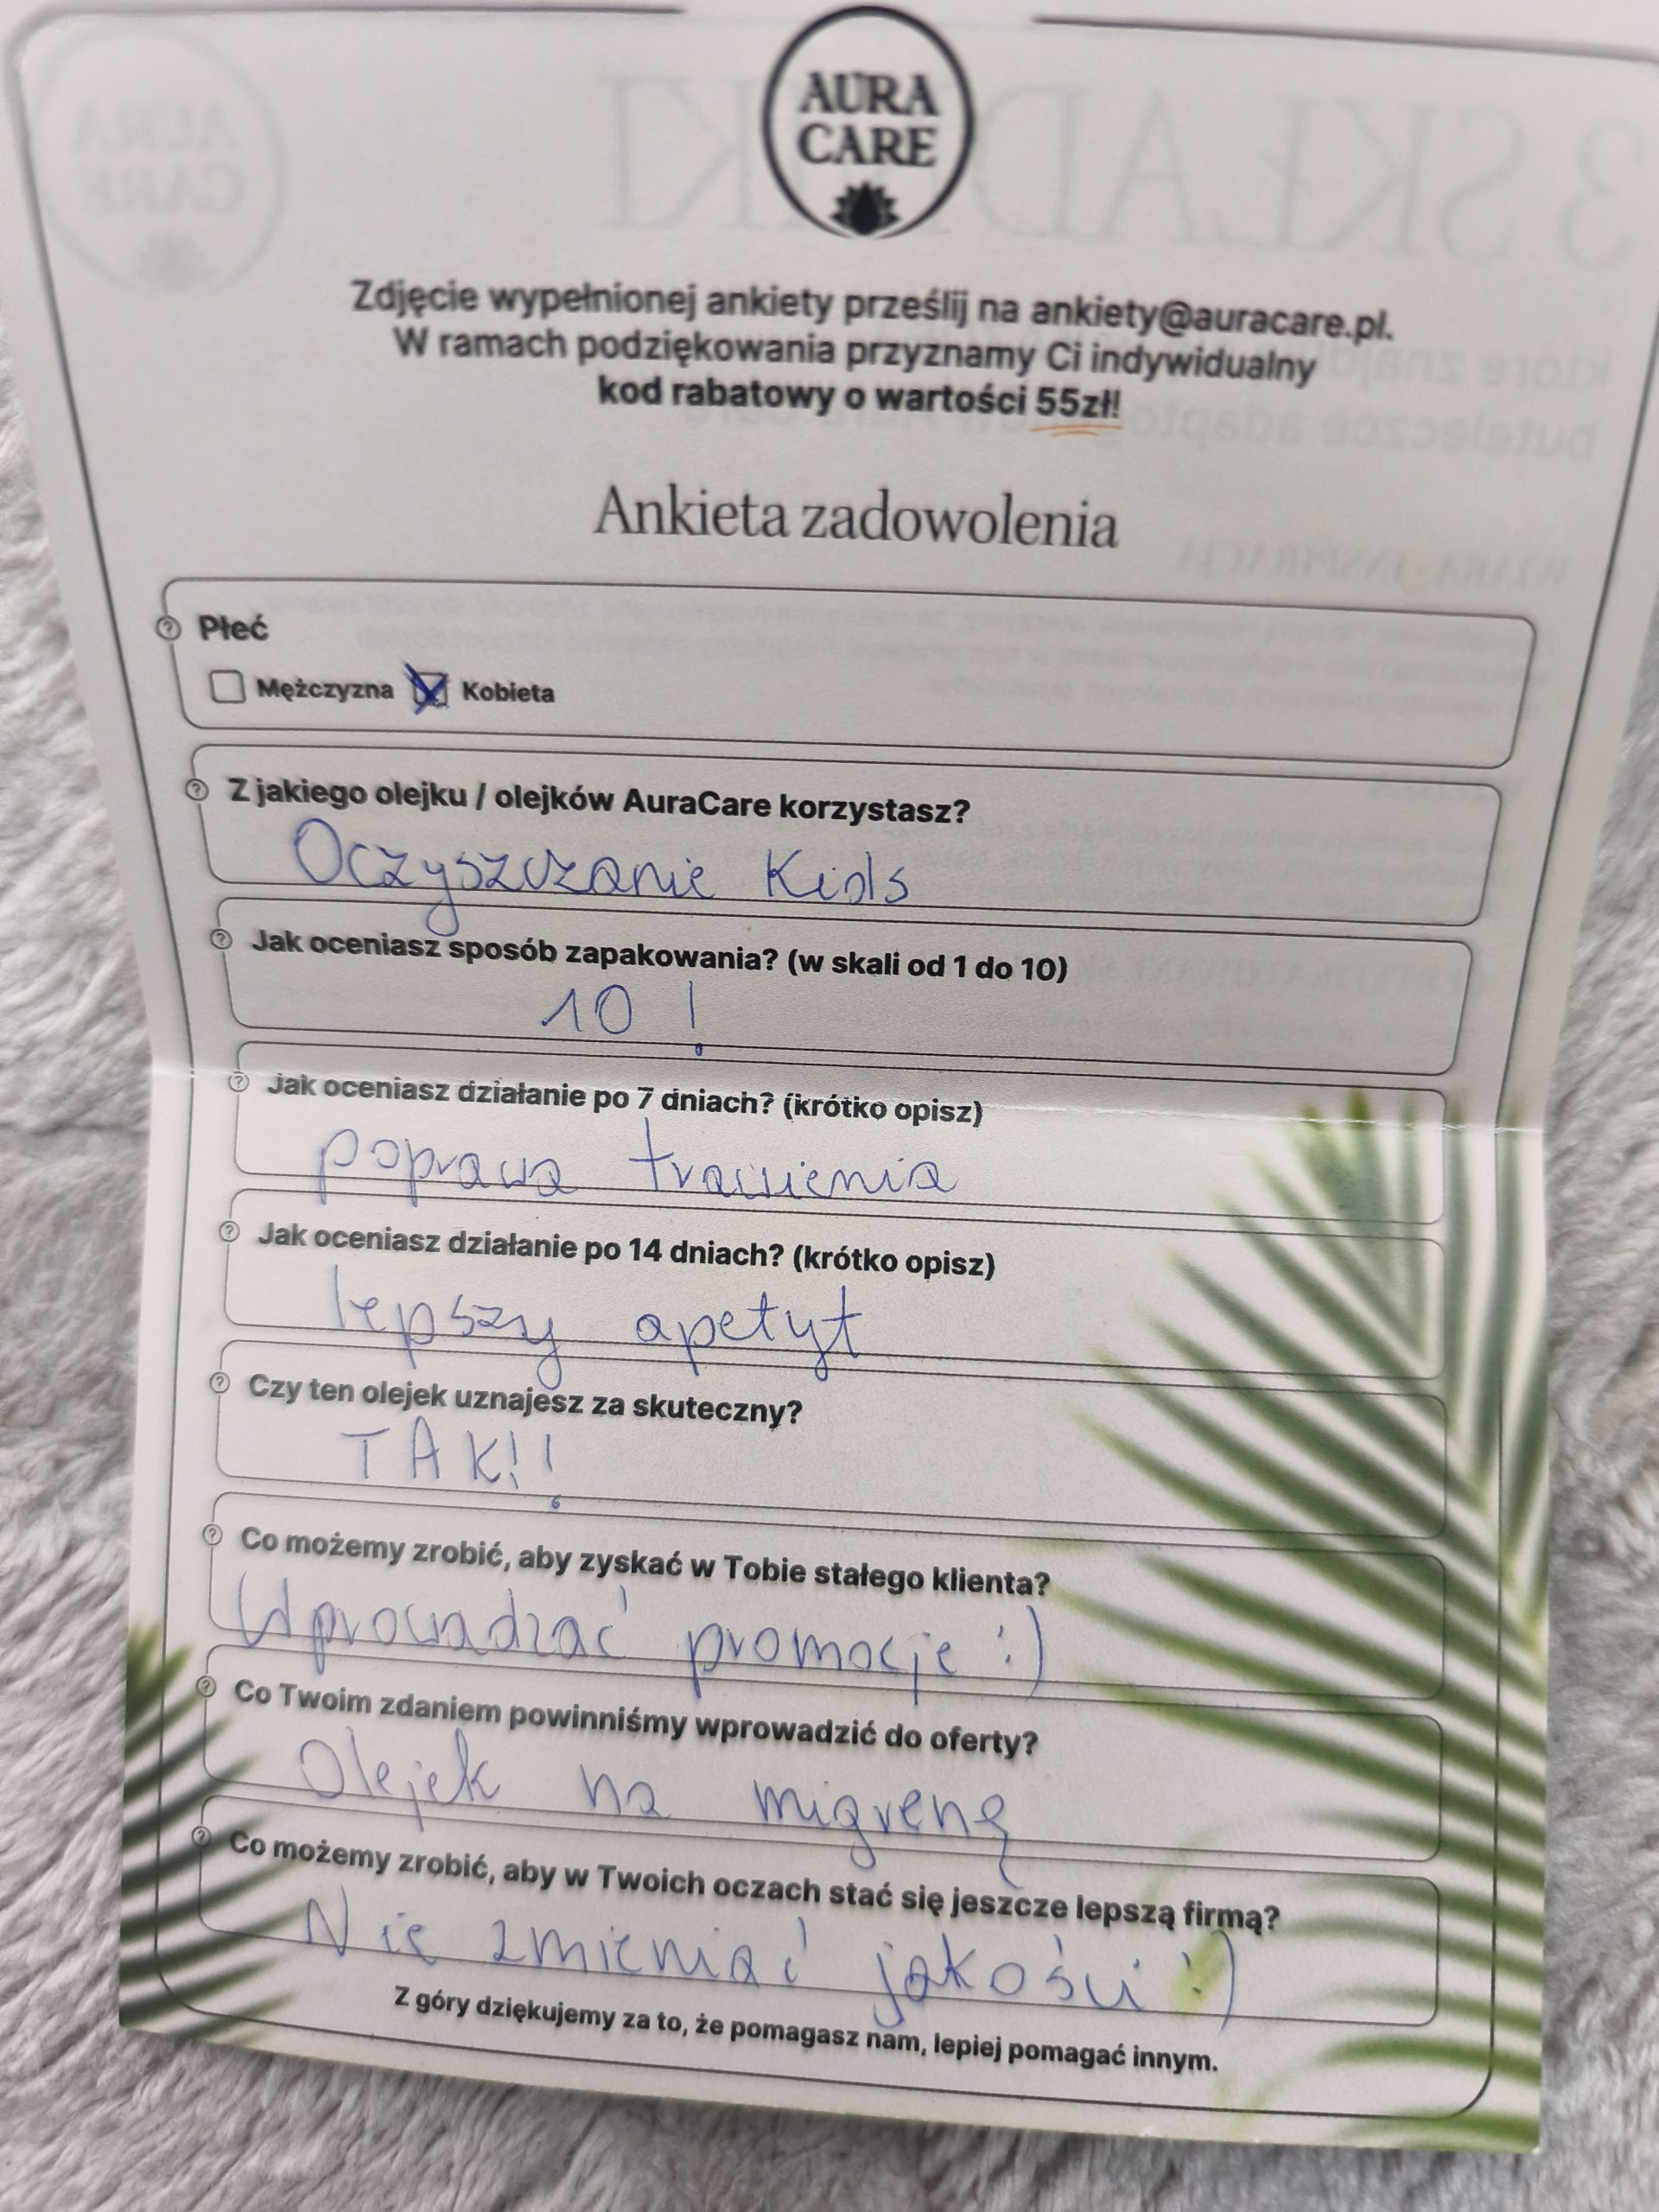 AURA
CARE
Zdjęcie wypełnionej ankiety prześlij na ankiety@auracare.pl.
W ramach podziękowania przyznamy Ci indywidualny
kod rabatowy o wartości 55zł!
Ankieta zadowolenia
Płeć
Mężczyzna Kobieta
Z jakiego olejku / olejków AuraCare korzystasz?
Oczyszczanie Kids
Jak oceniasz sposób zapakowania? (w skali od 1 do 10)
10!
Jak oceniasz działanie po 7 dniach? (krótko opisz)
poprawa trawienia
Jak oceniasz działanie po 14 dniach? (krótko opisz)
lepszy apetyt
Czy ten olejek uznajesz za skuteczny?
TAK!!
Co możemy zrobić, aby zyskać w Tobie stałego klienta?
Wprowadzać promocje :)
Co Twoim zdaniem powinniśmy wprowadzić do oferty?
Olejek na migrenę
Co możemy zrobić, aby w Twoich oczach stać się jeszcze lepszą firmą?
Nie zmieniać jakości :)
Z góry dziękujemy za to, że pomagasz nam, lepiej pomagać innym.